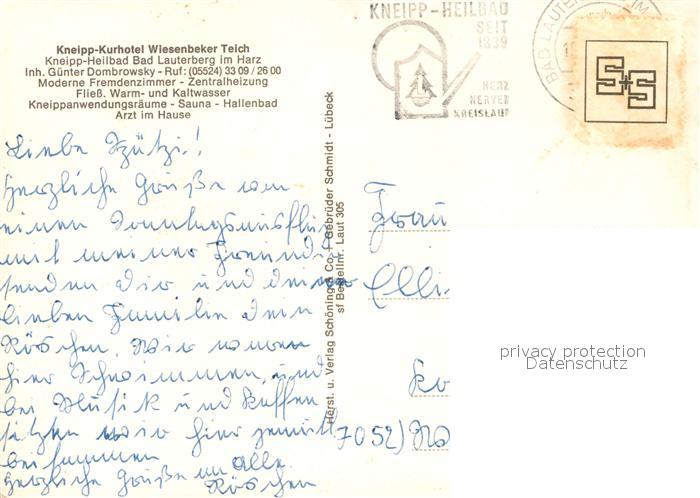 Kneipp-Kurhotel Wiesenbeker Teich
Kneipp-Heilbad Bad Lauterberg im Harz
Inh. Günter Dombrowsky - Ruf: (05524) 33 09 / 26 00
Moderne Fremdenzimmer - Zentralheizung
Fließ. Warm- und Kaltwasser
Kneippanwendungsräume - Sauna - Hallenbad
Arzt im Hause
KNEIPP-HEILBAD
SEIT
1839
HERZ
NERVEN
KREISLAUF
BAD LAUTERB
S+S
Liebe
Herzliche Grüße von
einen Sonntagsausflu
mit meiner Freundi
senden dir und deiner
lieben Familie dein
Röschen. Wir waren
hier Schwimmen, und
bei Musik und Kaffee
sitzen wir hier gemütl
beisammen
Herzliche Grüße an alle.
Röschen
Herst. u. Verlag Schöning & Co. + Gebrüder Schmidt - Lübeck
sf Bestellnr. Laut 305
Frau
Elli
(7052)
privacy protection
Datenschutz